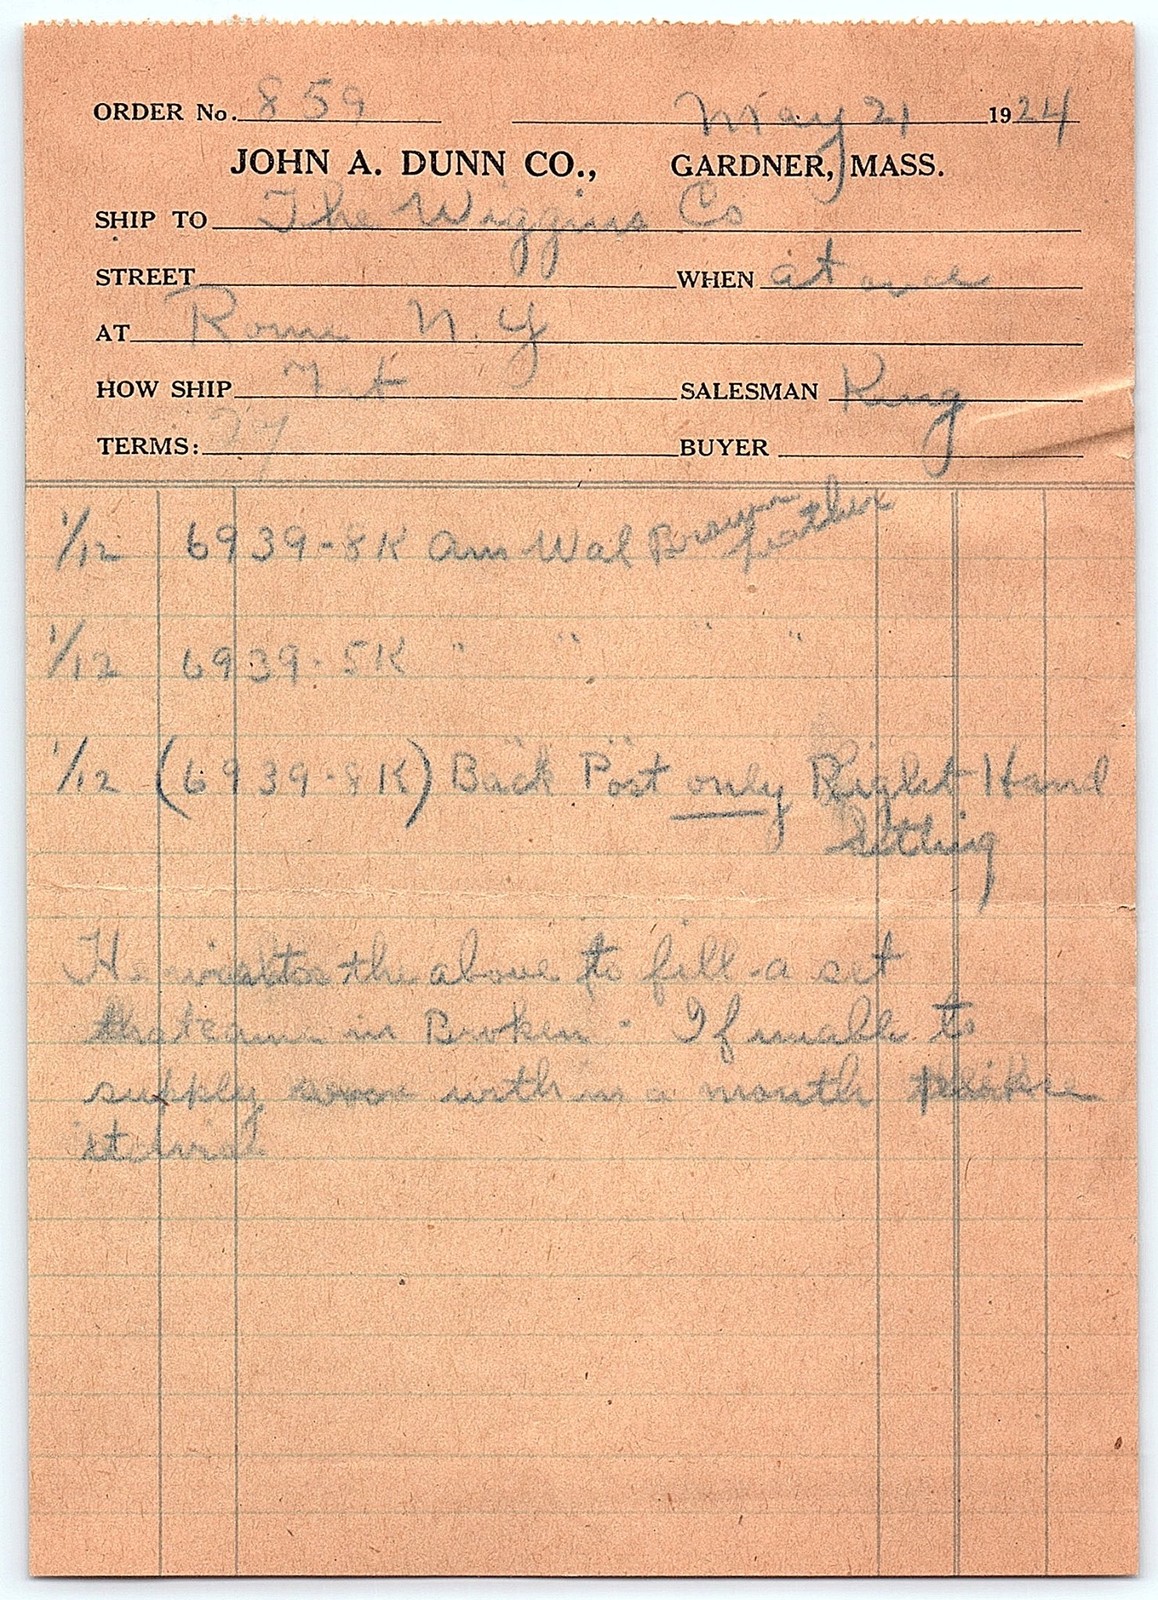 ORDER No. 859 May 21 1924
JOHN A. DUNN CO., GARDNER, MASS.
SHIP TO The Wiggins Co
STREET WHEN at once
AT Rome N.Y
HOW SHIP Frt SALESMAN King
TERMS: BUYER
1/12 6939-8K Am Wal Brown leather
1/12 6939-5K " " " "
1/12 (6939-8K) Back Post only Right Hand
setting
He wants the above to fill a set
that came in Broken. If unable to
supply soon within a month please